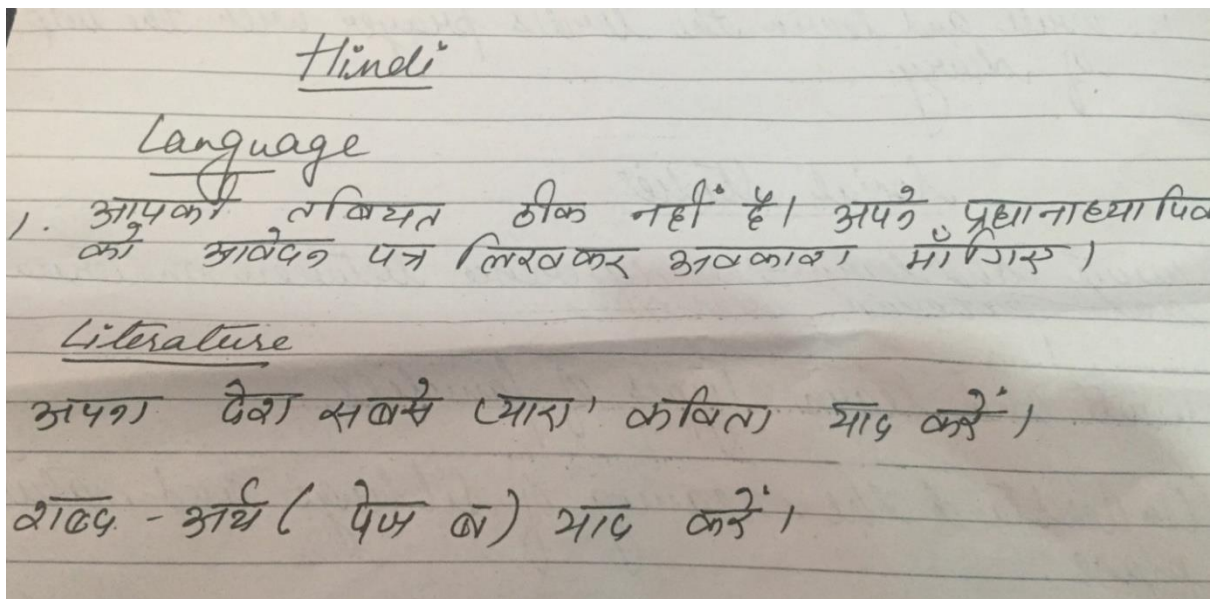 Hindi
Language
1. आपकी तबियत ठीक नहीं है। अपने प्रधानाध्यापिक
को आवेदन पत्र लिखकर अवकाश माँगिए।
Literature
अपना देश सबसे प्यारा' कविता याद करें।
शब्द - अर्थ ( पेज ) याद करें।